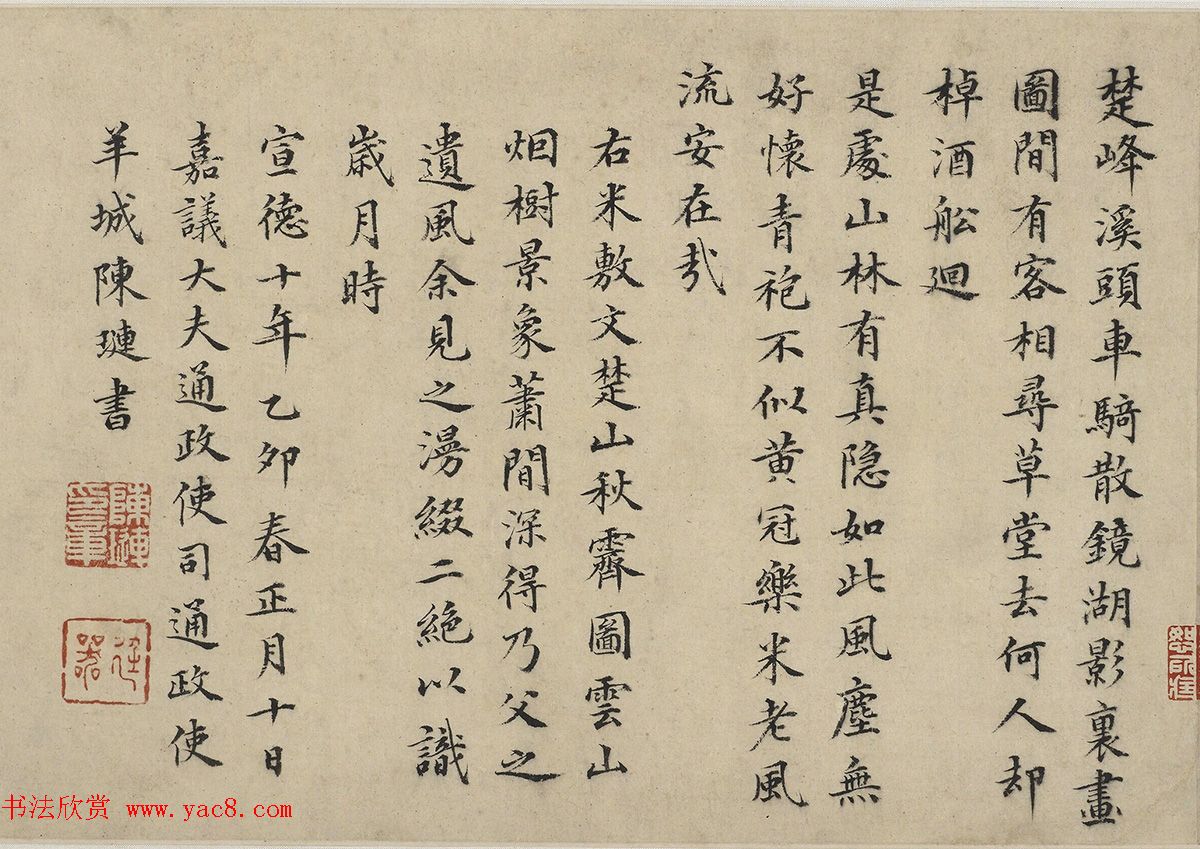 楚峰溪頭車騎散鏡湖影裏畫
圖間有客相尋草堂去何人却
棹酒舩廻
是處山林有真隠如此風塵無
好懷青袍不似黄冠樂米老風
流安在㢤
右米敷文楚山秋霽圖雲山
烟樹景象蕭間深得乃父之
遺風余見之漫綴二絕以識
歳月時
宣德十年乙夘春正月十日
嘉議大夫通政使司通政使
羊城陳璉書
陳璉
书法欣赏 www.yac8.com